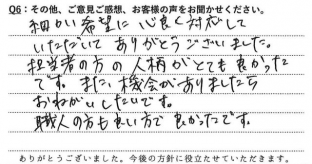 Q6：その他、ご意見ご感想、お客様の声をお聞かせください。
細かい希望に心良く対応して
いただいてありがとうございました。
担当者の方の人柄がとても良かった
です。また、機会がありましたら
おねがいしたいです。
職人の方も良い方で良かったです。
ありがとうございました。今後の方針に役立たせていただきます。